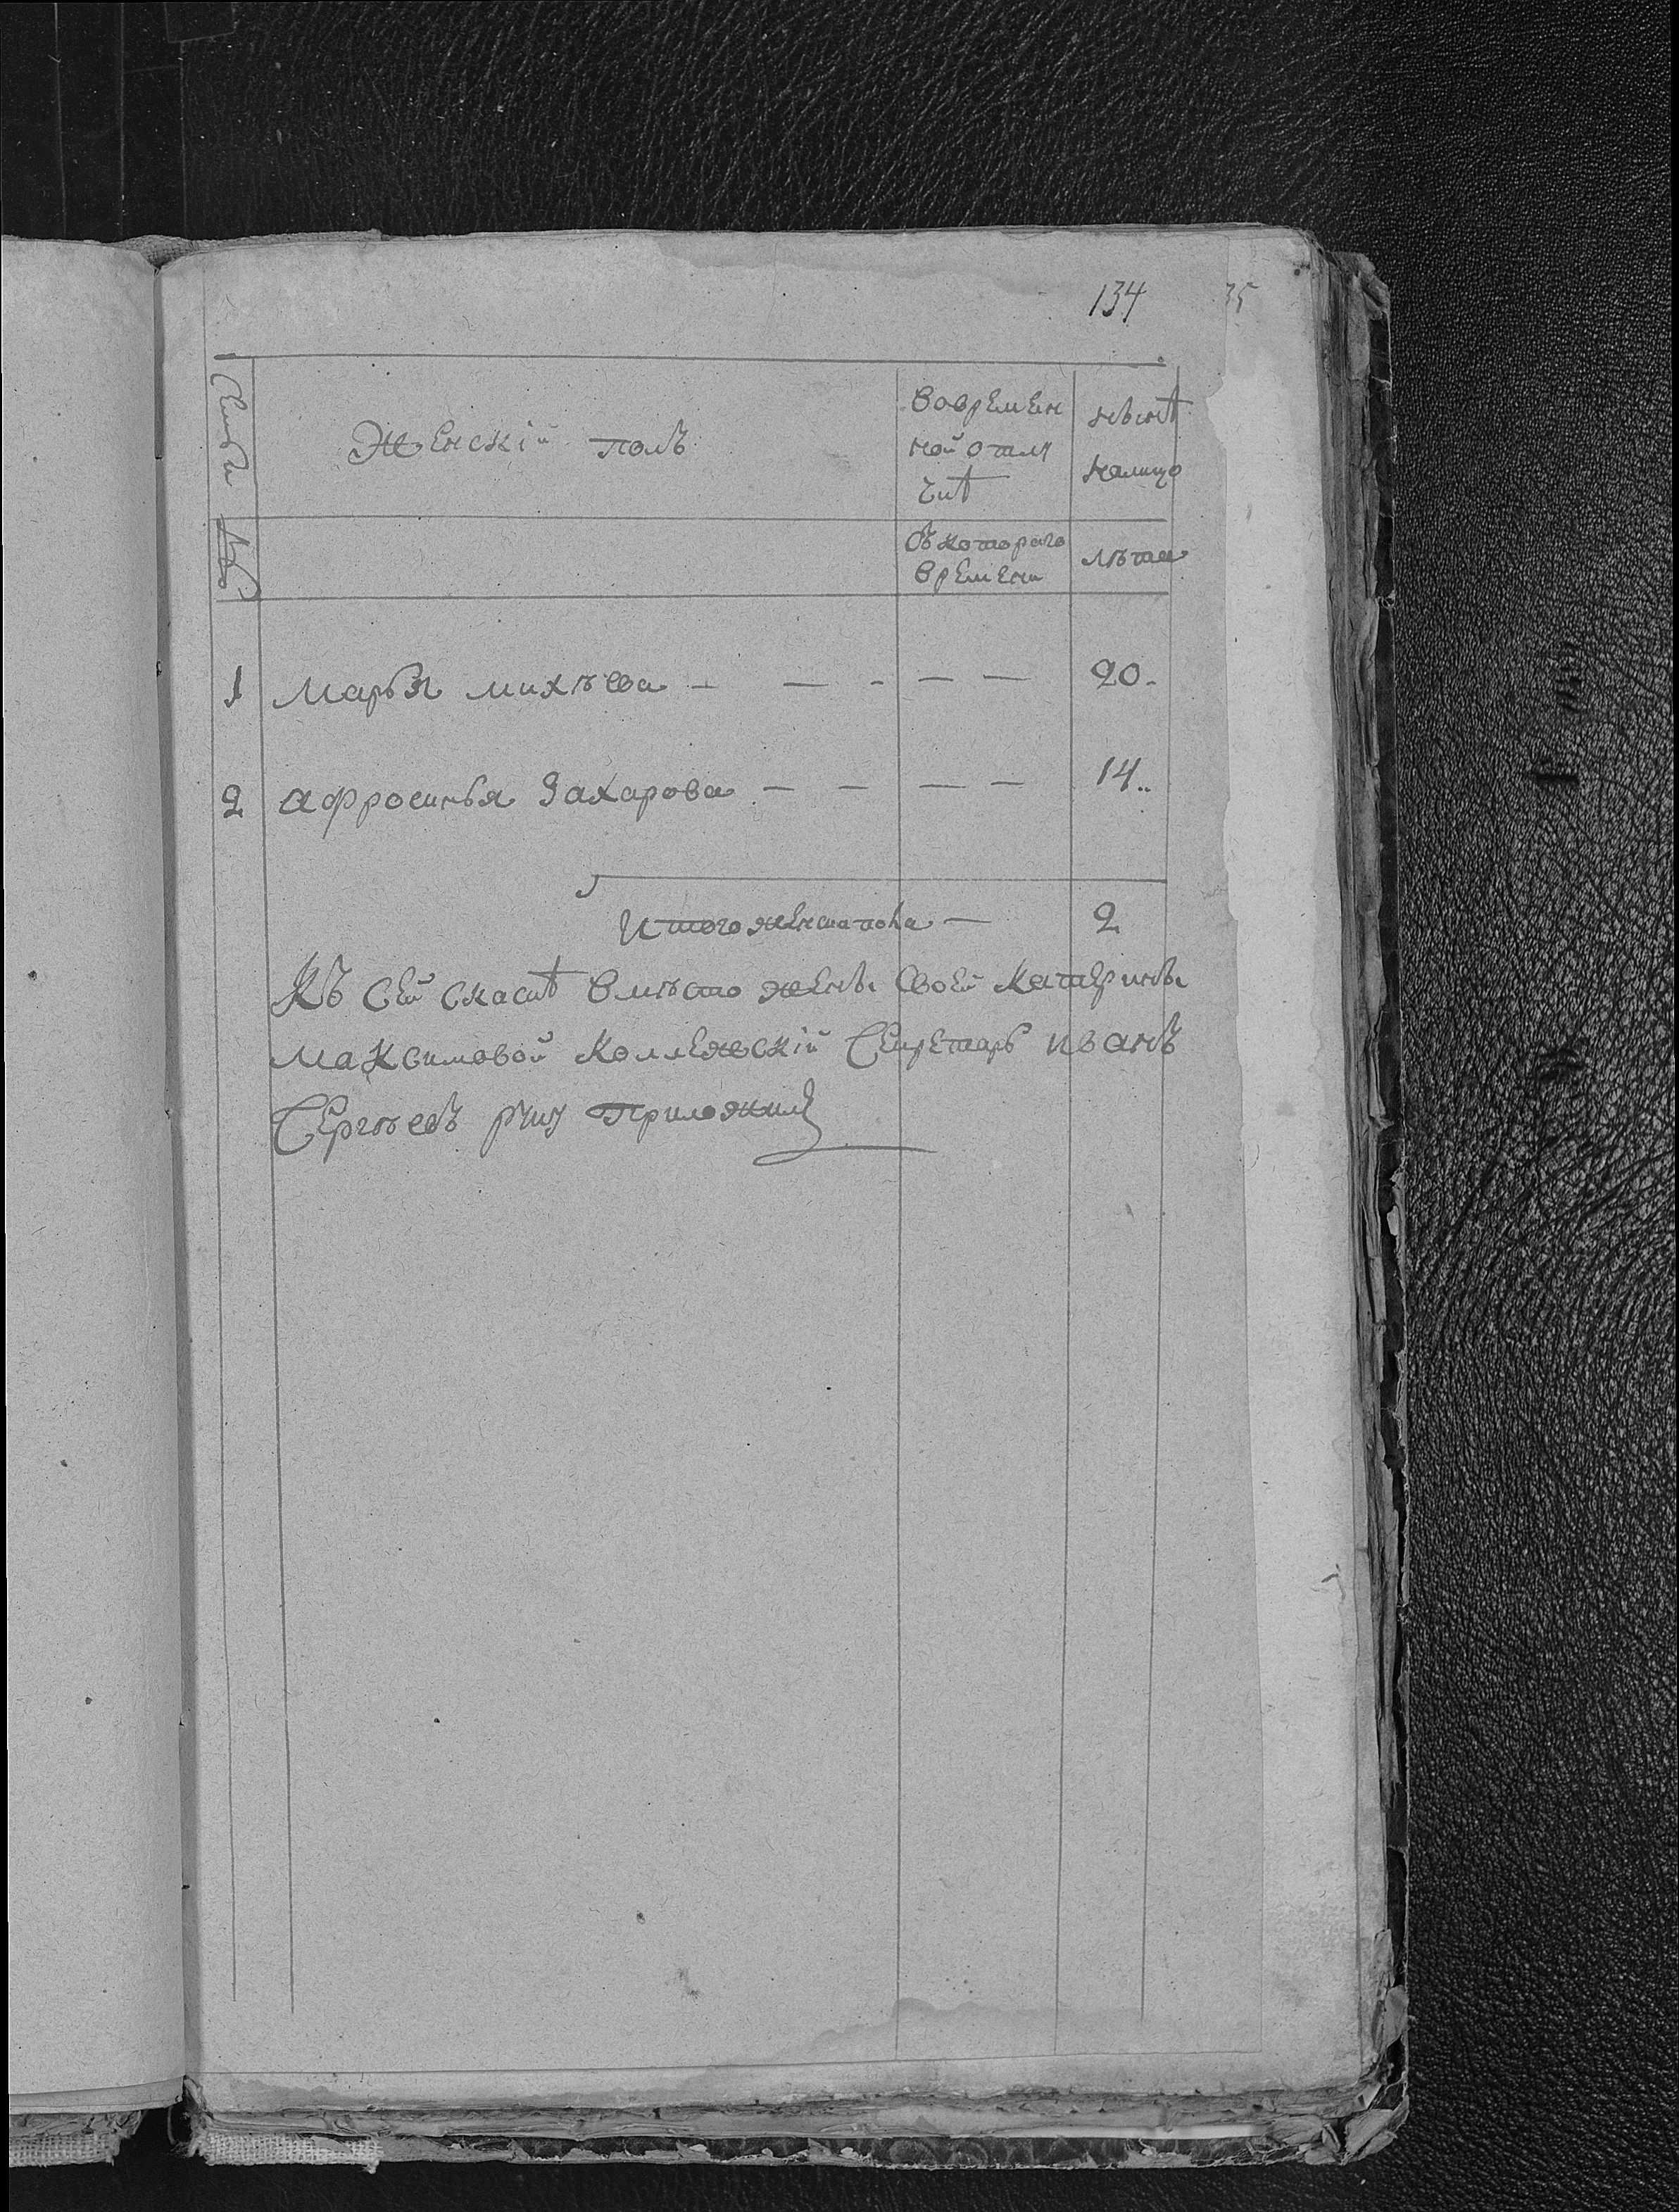 134
35
Семьи №
Женскій полъ
Вовремен
ной отлу
чкѣ
нынѣ
налицо
Съ котораго
времени
лѣта
1 Марья михѣева — — - — — 20.
2 афросинья Захарова — — — — 14..
Итого женска пола — 2
Къ Сей скаскѣ вмѣсто жены своей катерины
максимовой Коллежскій Секретарь иванъ
Сергѣевъ руку приложилъ